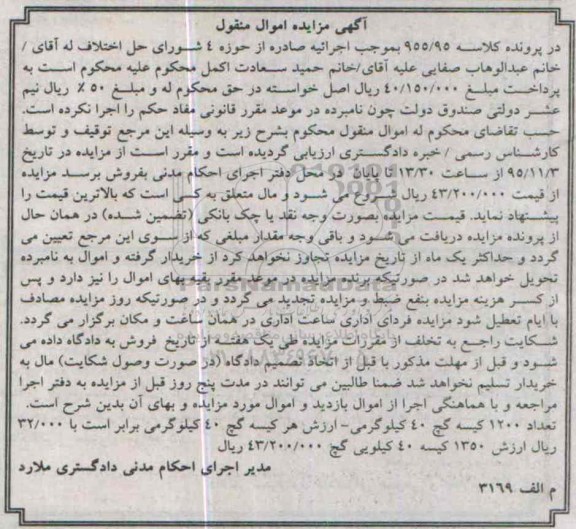 آگهی مزایده اموال منقول
در پرونده کلاسه ۹۵۵/۹۵ بموجب اجرائیه صادره از حوزه ٤ شورای حل اختلاف له آقای /
خانم عبدالوهاب صفایی علیه آقای/خانم حمید سعادت اکمل محکوم علیه محکوم است به
پرداخت مبلغ ٤۰/۱۵۰/۰۰۰ ریال اصل خواسته در حق محکوم له و مبلغ ۵۰ ٪ ریال نیم
عشر دولتی صندوق دولت چون نامبرده در موعد مقرر قانونی مفاد حکم را اجرا نکرده است.
حسب تقاضای محکوم له اموال منقول محکوم بشرح زیر به وسیله این مرجع توقیف و توسط
کارشناس رسمی / خبره دادگستری ارزیابی گردیده است و مقرر است از مزایده در تاریخ
۹۵/۱۱/۳ از ساعت ۱۳/۳۰ تا پایان در محل دفتر اجرای احکام مدنی بفروش برسد مزایده
از قیمت ٤۳/۲۰۰/۰۰۰ ریال شروع می شود و مال متعلق به کسی است که بالاترین قیمت را
پیشنهاد نماید. قیمت مزایده بصورت وجه نقد یا چک بانکی (تضمین شده) در همان حال
از پرونده مزایده دریافت می شود و باقی وجه مقدار مبلغی که از سوی این مرجع تعیین می
گردد و حداکثر یک ماه از تاریخ مزایده تجاوز نخواهد کرد از خریدار گرفته و اموال به نامبرده
تحویل خواهد شد در صورتیکه برنده مزایده در موعد مقرر بقیه بهای اموال را نیز دارد و پس
از کسر هزینه مزایده بنفع ضبط و مزایده تجدید می گردد و در صورتیکه روز مزایده مصادف
با ایام تعطیل شود مزایده فردای اداری ساعت اداری در همان ساعت و مکان برگزار می گردد.
شکایت راجع به تخلف از مقررات مزایده طی یک هفته از تاریخ فروش به دادگاه داده می
شود و قبل از مهلت مذکور یا قبل از اتخاذ تصمیم دادگاه (در صورت وصول شکایت) مال به
خریدار تسلیم نخواهد شد ضمنا طالبین می توانند در مدت پنج روز قبل از مزایده به دفتر اجرا
مراجعه و با هماهنگی اجرا از اموال بازدید و اموال مورد مزایده و بهای آن بدین شرح است.
تعداد ۱۲۰۰ کیسه گچ ٤۰ کیلوگرمی- ارزش هر کیسه گچ ٤۰ کیلوگرمی برابر است با ۳۲/۰۰۰
ریال ارزش ۱۳۵۰ کیسه ٤۰ کیلویی گچ ٤۳/۲۰۰/۰۰۰ ریال
مدیر اجرای احکام مدنی دادگستری ملارد
م الف ۳۱٦۹
ParsNamadData